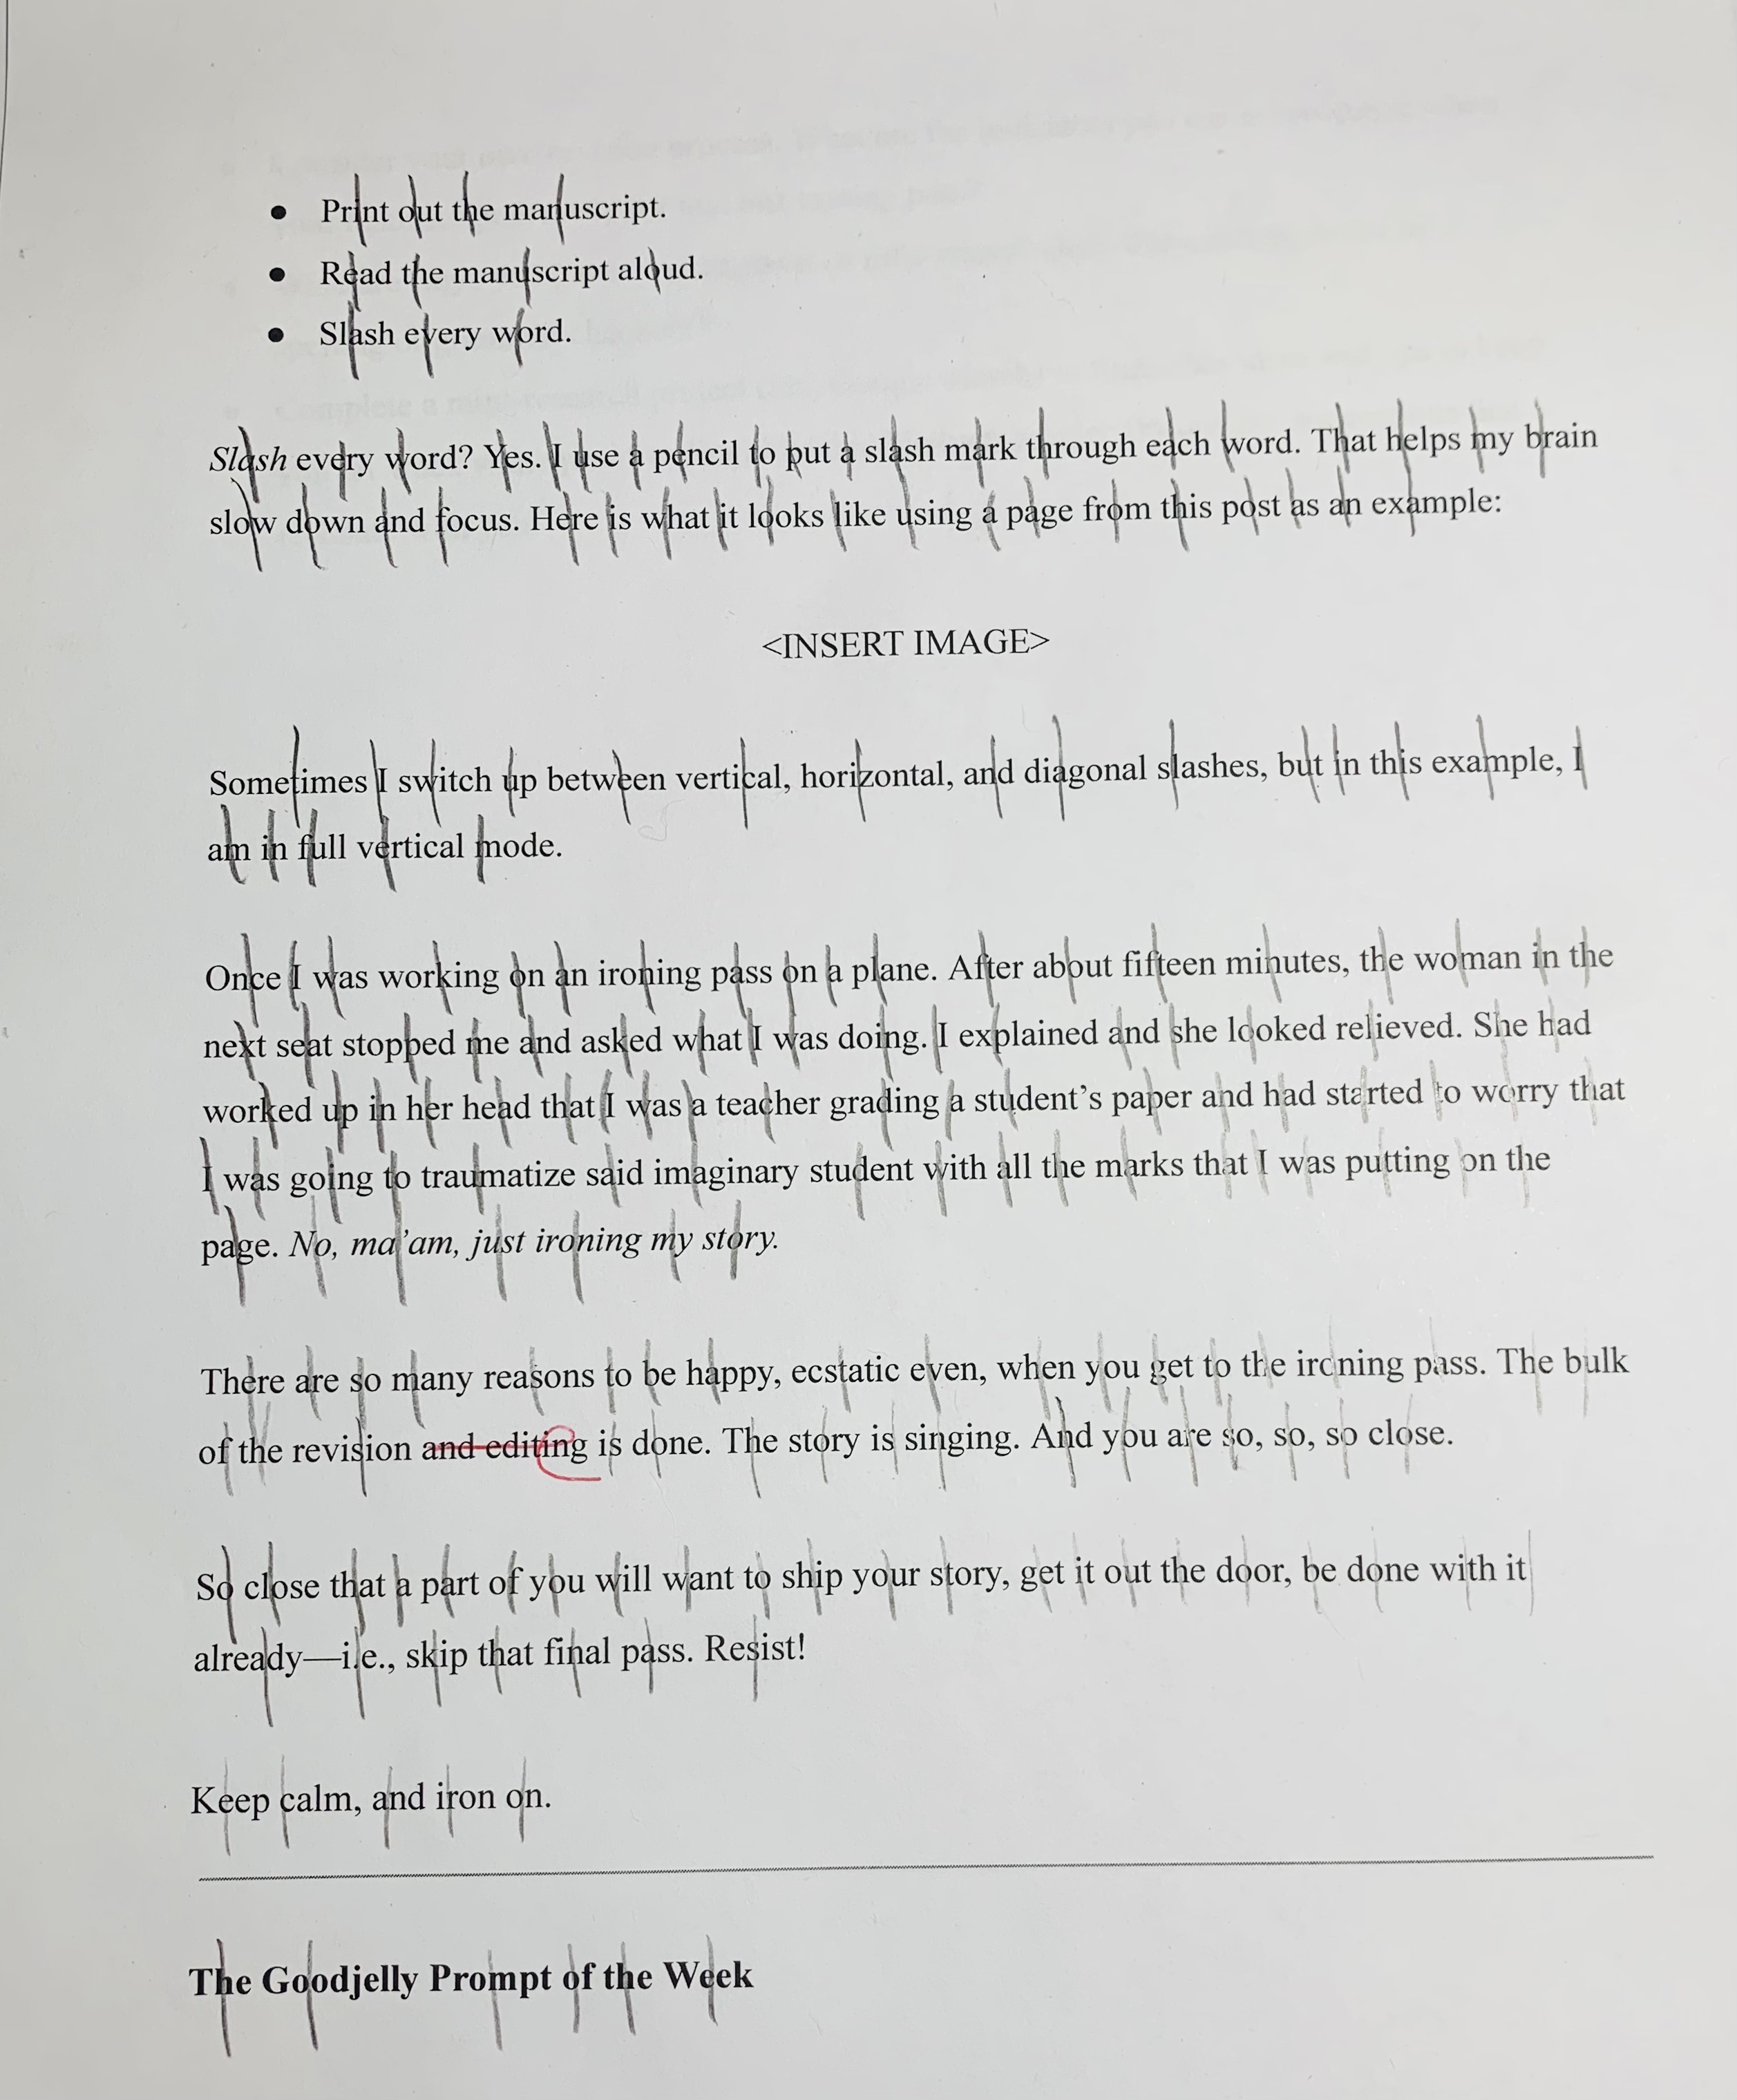 • Print out the manuscript.
• Read the manuscript aloud.
• Slash every word.
Slash every word? Yes. I use a pencil to put a slash mark through each word. That helps my brain
slow down and focus. Here is what it looks like using a page from this post as an example:
<INSERT IMAGE>
Sometimes I switch up between vertical, horizontal, and diagonal slashes, but in this example, I
am in full vertical mode.
Once I was working on an ironing pass on a plane. After about fifteen minutes, the woman in the
next seat stopped me and asked what I was doing. I explained and she looked relieved. She had
worked up in her head that I was a teacher grading a student's paper and had started to worry that
I was going to traumatize said imaginary student with all the marks that I was putting on the
page. No, ma'am, just ironing my story.
There are so many reasons to be happy, ecstatic even, when you get to the ironing pass. The bulk
of the revision and editing is done. The story is singing. And you are so, so, so close.
So close that a part of you will want to ship your story, get it out the door, be done with it
already—i.e., skip that final pass. Resist!
Keep calm, and iron on.
The Goodjelly Prompt of the Week